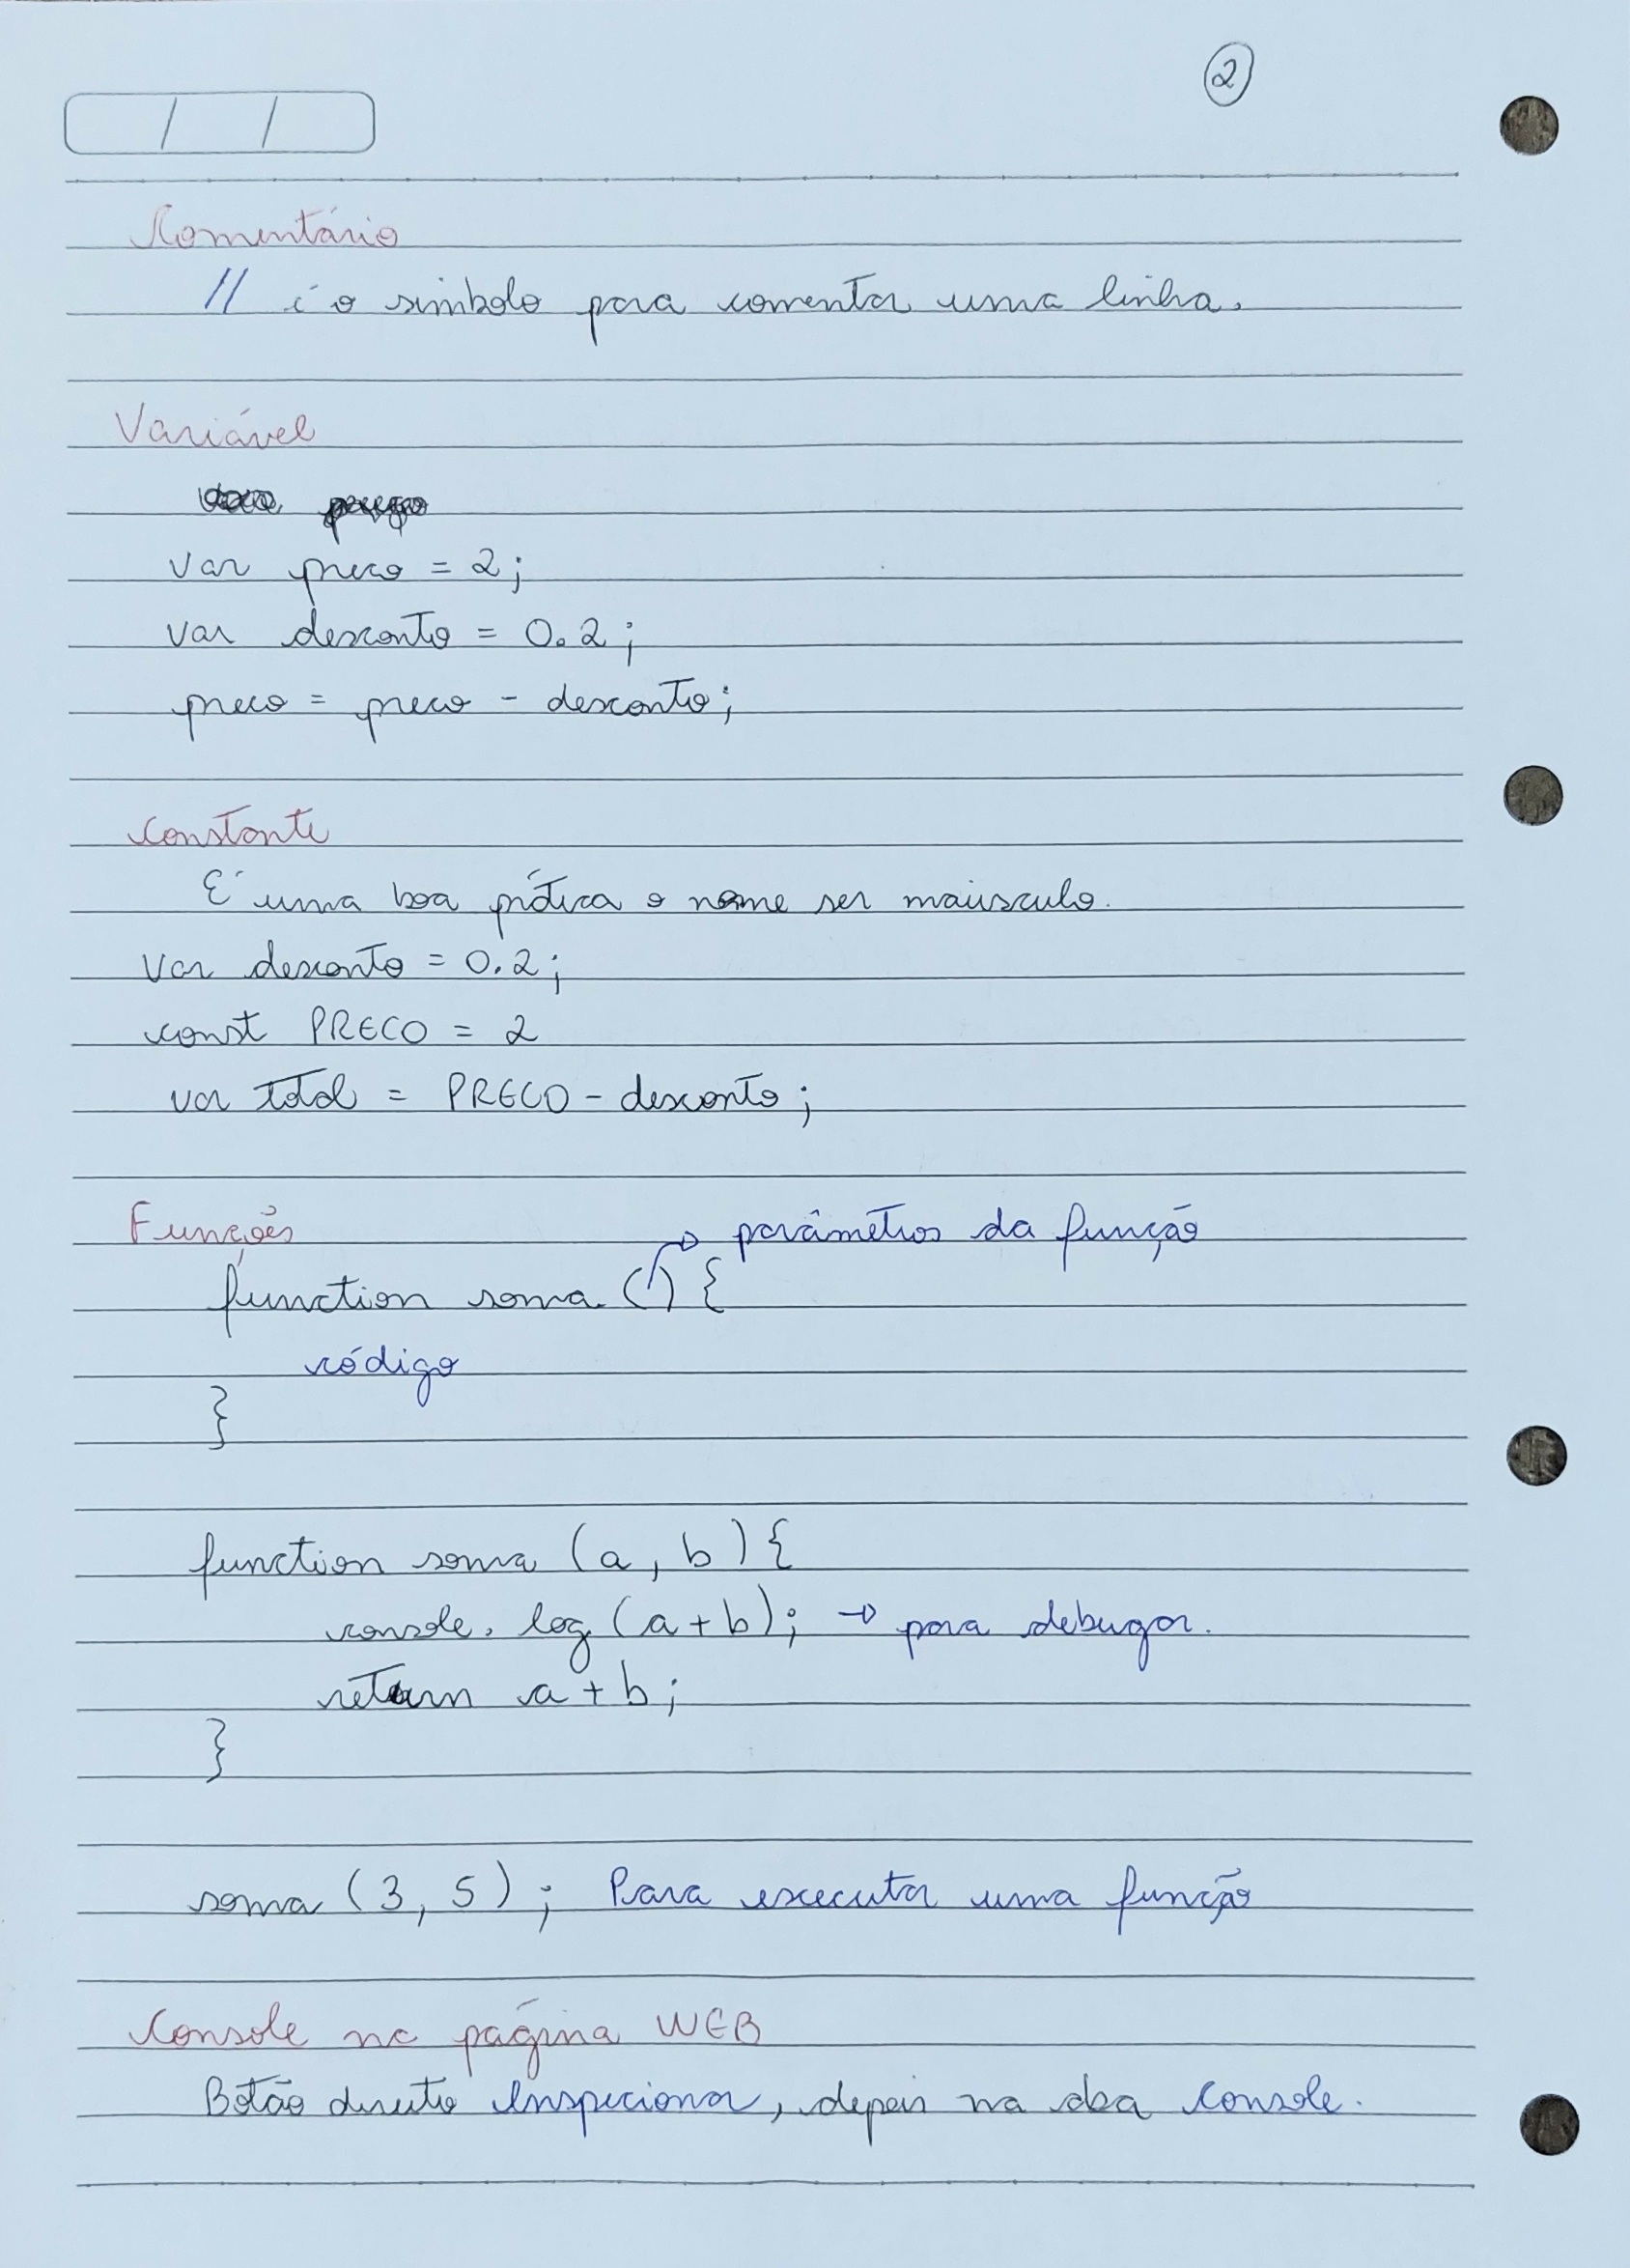 2
/ /
Comentário
// é o simbolo para comentar uma linha.
Variável
var preco = 2;
var desconto = 0.2;
preco = preco - desconto;
Constante
É uma boa prática o nome ser maiúsculo.
var desconto = 0.2;
const PRECO = 2
var total = PRECO - desconto;
Funções
→ parâmetros da função
function soma () {
código
}
function soma (a, b) {
console.log (a + b); → para debugar.
return a + b;
}
soma (3, 5); Para executar uma função
Console na página WEB
Botão direito Inspecionar, depois na aba Console.